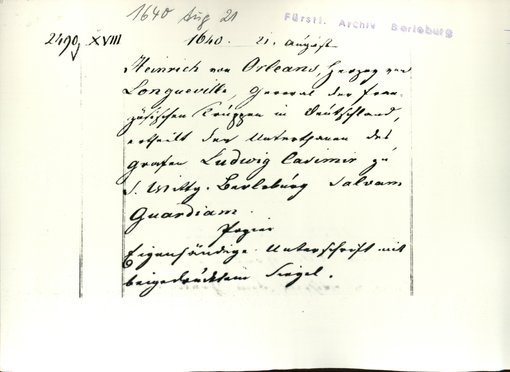 1640 Aug 21
Fürstl. Archiv Berleburg
2490, XVIII 1640. 21. August
Heinrich von Orleans, Herzog von
Longueville, General der fran-
zösischen Truppen in Deutschland,
ertheilt den Unterthanen des
Grafen Ludwig Casimir zu
S. Wittg. Berleburg Salvam
Guardiam.
Papier
Eigenhändige Unterschrift mit
beigedrücktem Siegel.